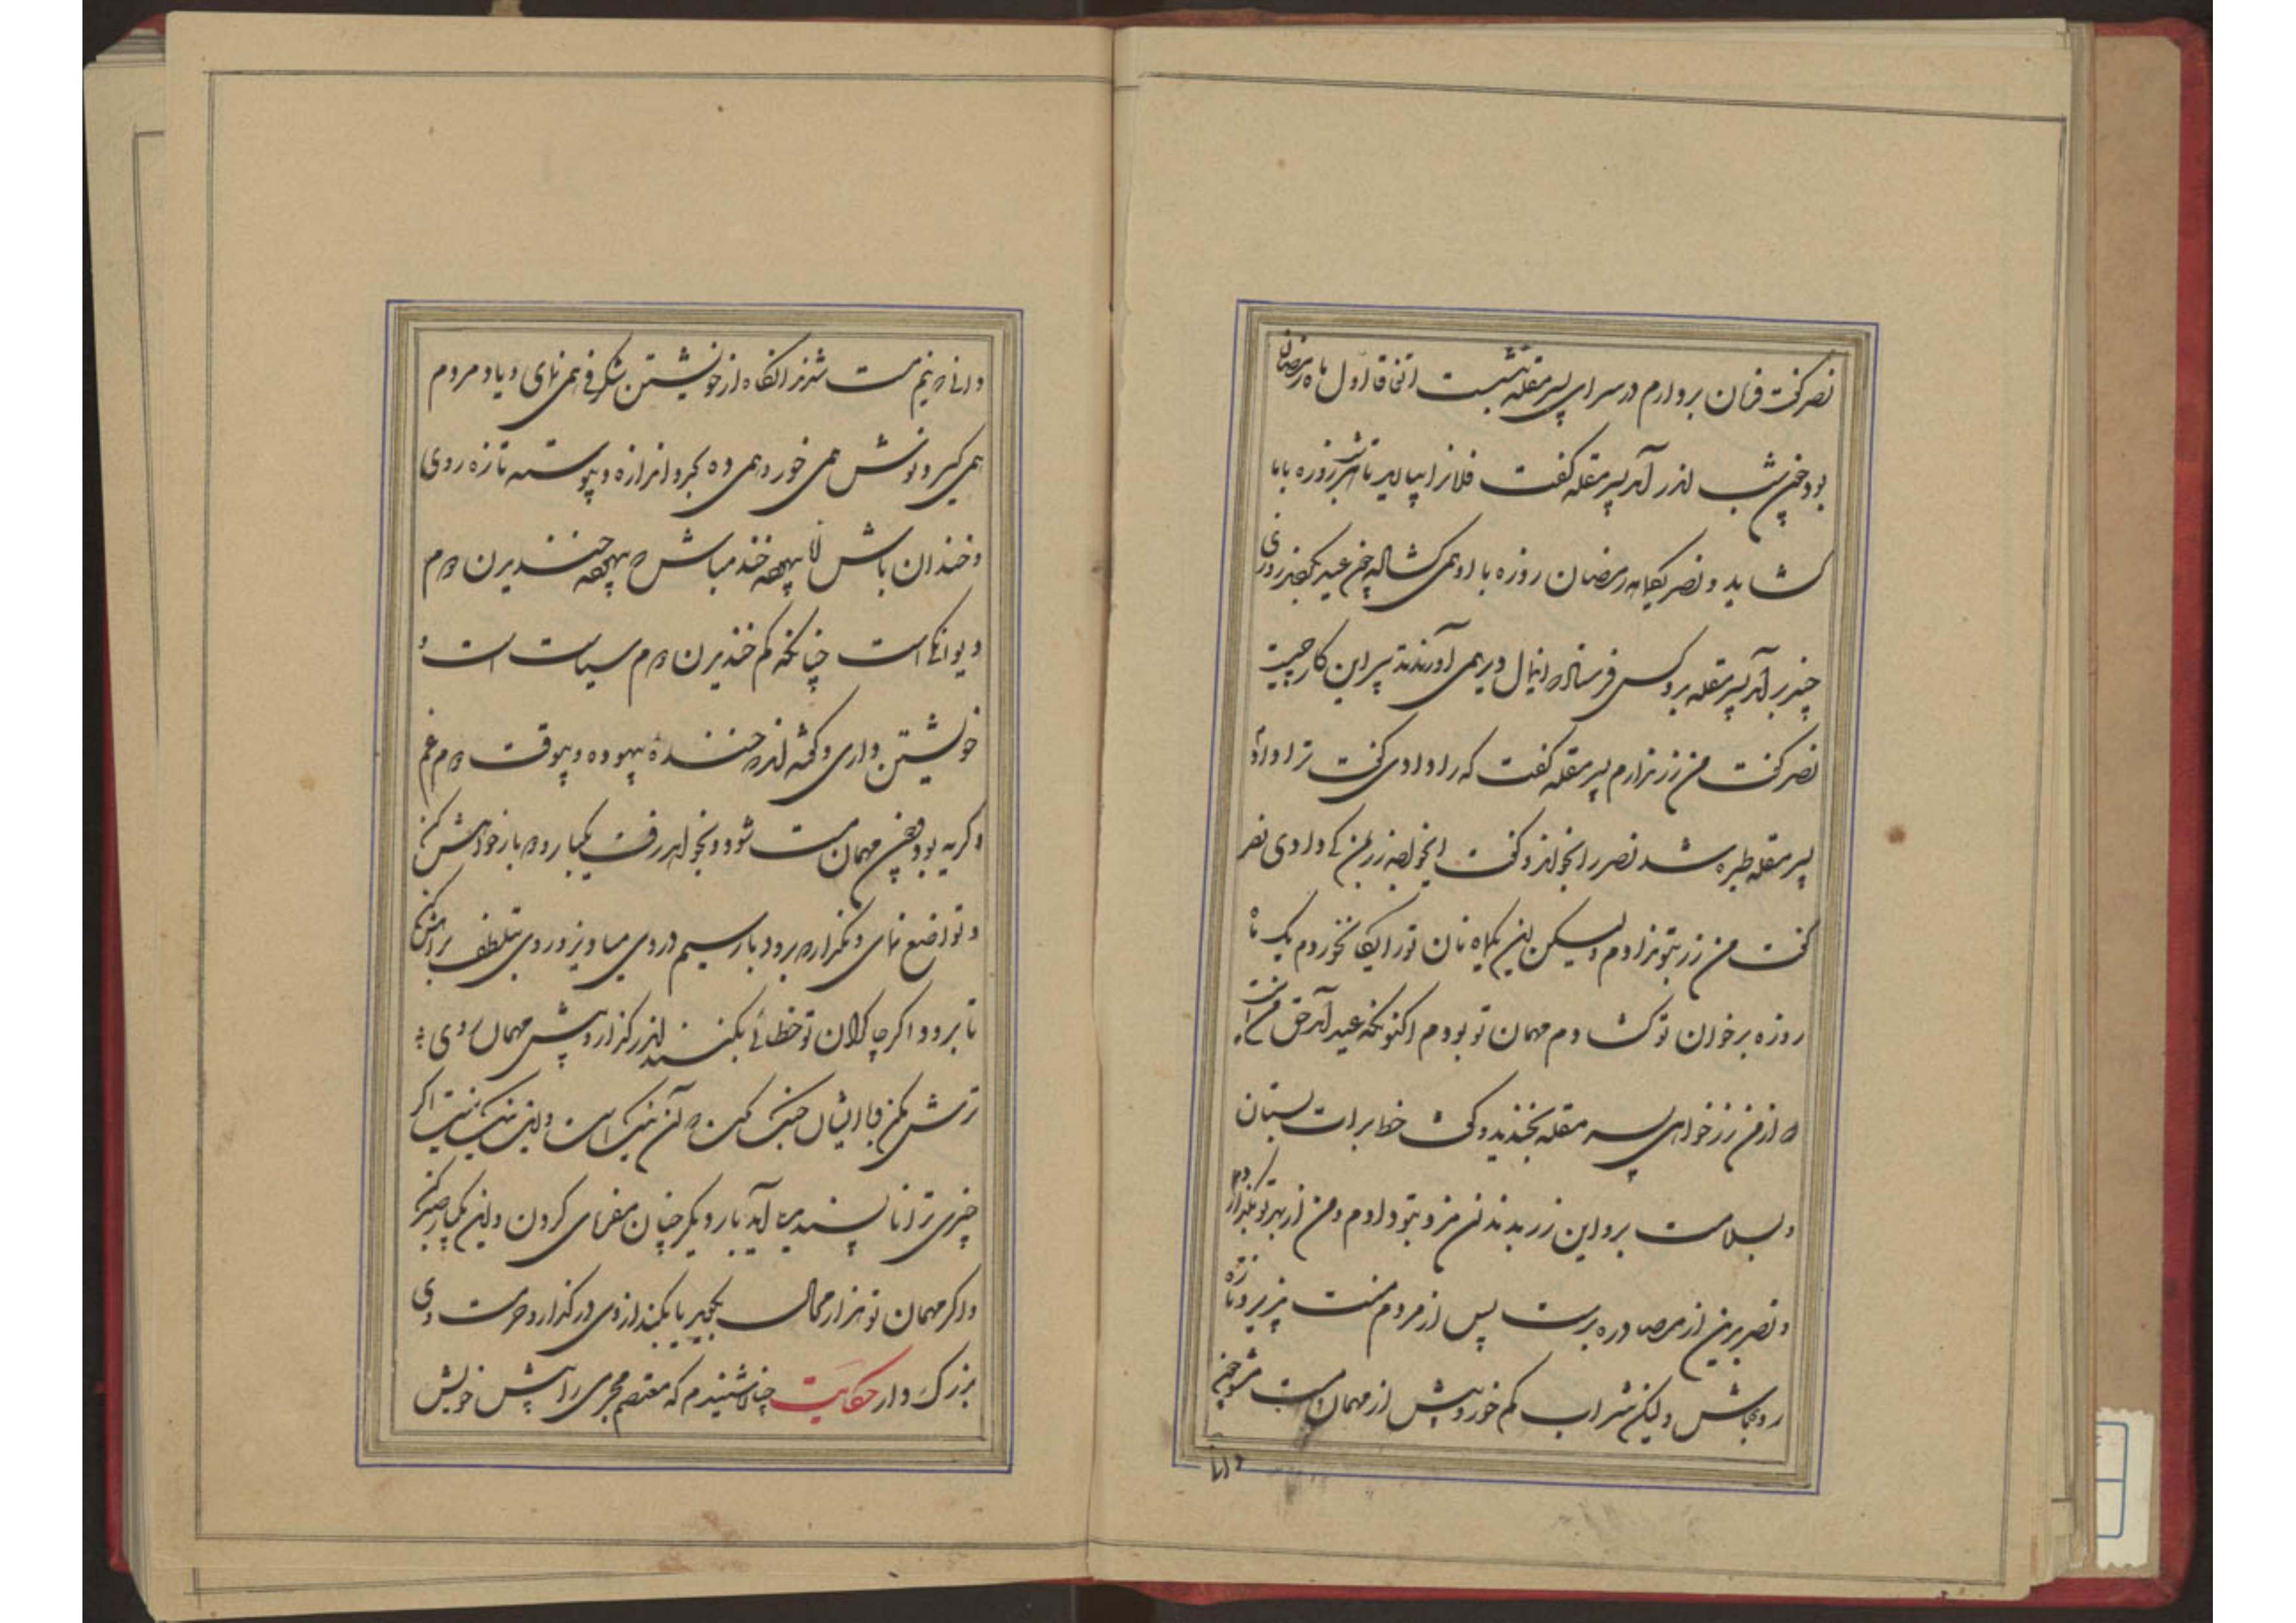 نصر گفت فرمان بردارم در سرای پسر مقله بنشست اتفاقا اول ماه رمضان
بود چون شب اندر آمد پسر مقله گفت فلانرا بیاارید تا امشب روزه با ما
گشاید و نصر یکماه رمضان روزه با او همی گشاد چون عید بکردند روزی
چند برآمد پسر مقله بدو کس فرستاد که این مال دیر همی آورند تدبیر این کار چیست
نصر گفت من زر بدادم پسر مقله گفت که را دادی گفت ترا دادم
پسر مقله طیره شد نصر را بخواند و گفت ایخواجه زر بمن کی دادی نصر
گفت من زر بتو ندادم ولیکن این یکماه نان تو رایگان بخوردم یک ماه
روزه بر خوان تو گشادم مهمان تو بودم اکنونکه عید آمد حق من آنست
که از من زر خواهی پسر مقله بخندید و گفت خط برات بستان
و بسلامت برو این زر بدندان مزد بتو دادم و من از بهر تو بگذارم
و نصر بدین از مصادره برست پس از مردم منت پذیر و تازه
رو باش ولیکن شراب کم خور و پیش از مهمان مست مشو چون
دانی
دانی که نیم مست شدند آنگاه از خویشتن شگرفی همی نمای و یاد مردم
همی گیر و نوش همی خور و همی ده بحد و اندازه و پیوسته تازه روی
و خندان باش اما بیهده خند مباش که بیهده خندیدن دوم
دیوانگی است چنانکه کم خندیدن دوم سیاست است و
خویشتن داری و گفته اند که خنده بیهوده و بیوقت دوم غم
و گریه بود و چون مهمان مست شود و بخواهد رفت یکبار دوبار خواهش کن
و تواضع نمای و مگذار که برود بار سیم در وی میاویز و روی بتلطف براهش کن
تا برود و اگر چاکران تو خطائی بکنند اندر گذار و پیش مهمان روی
ترش مکن و با ایشان جنگ مکن که آن نیک است و این نیک نیست اگر
چیزی ترا ناپسندیده آید بار دیگر چنان مفرمای کردن و این یکبار صبر کن
و اگر مهمان تو هزار محال بگوید یا بکند از وی در گذار و حرمت وی
بزرگ دار حکایت چنان شنیدم که معتصم مجرمی را پیش خویش